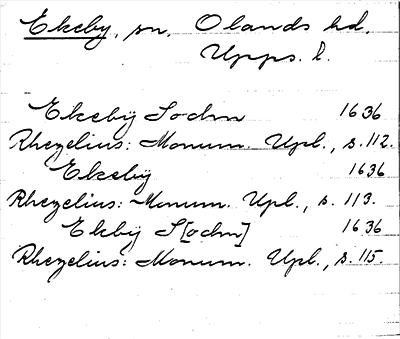 Ekeby, sn. Olands hd.
Upps. l.
Ekebÿ Sochn 1636
Rhezelius: Monum. Upl., s. 112.
Ekebÿ 1636
Rhezelius: Monum. Upl., s. 113.
Ekbÿ S[ochn] 1636
Rhezelius: Monum. Upl., s. 115.